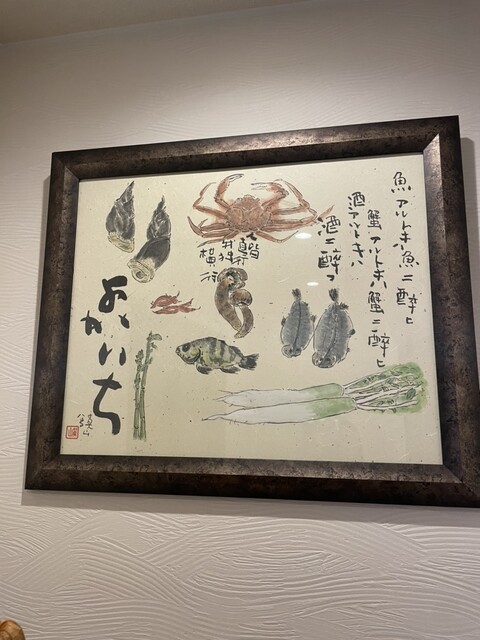 魚アルトキハ魚ニ酔ヒ
蟹アルトキハ蟹ニ酔ヒ
酒アルトキハ
酒ニ酔フ
横行
よかいち